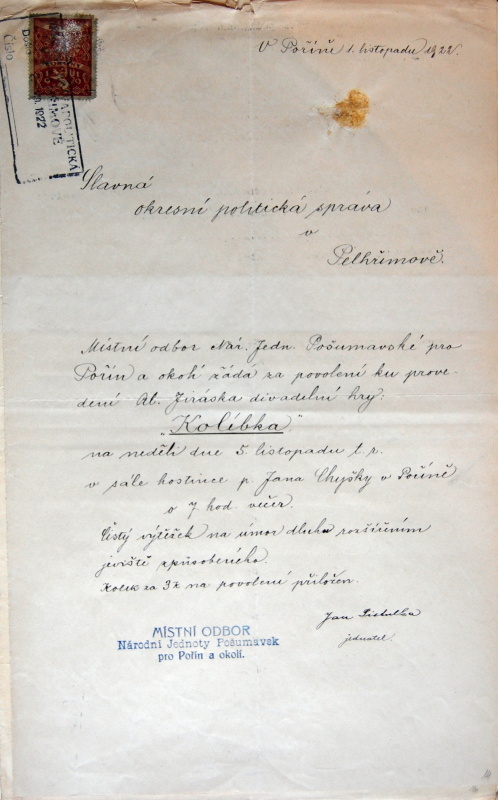 V Poříně 1. listopadu 1922.
Číslo
POLITICKÁ
1922
Slavná
okresní politická správa
v
Pelhřimově.
Místní odbor Nár. Jedn. Pošumavské pro
Pořín a okolí žádá za povolení ku prove-
dení Al. Jiráska divadelní hry:
"Kolébka"
na neděli dne 5. listopadu t. r.
v sále hostince p. Jana Chyšky v Poříně
o 7 hod. večer.
Čistý výtěžek na úmor dluhu rozšířením
jeviště způsobeného.
Kolek za 3 na povolení přiložen.
Jan
jednatel.
MÍSTNÍ ODBOR
Národní Jednoty Pošumavsk
pro Pořín a okolí.